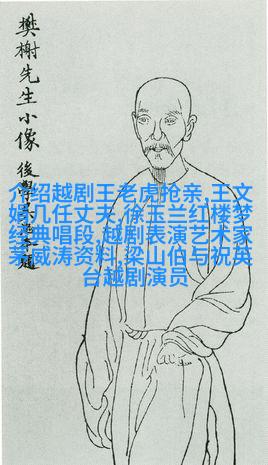 樊榭先生小像
後學
介绍越剧王老虎抢亲,王文
娟几任丈夫,徐玉兰红楼梦
经典唱段,越剧表演艺术家
茅威涛资料,梁山伯与祝英
台越剧演员